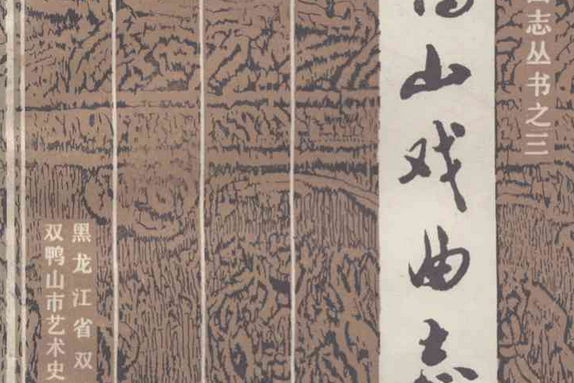 志丛书之三
山戏曲志
黑龙江省双
双鸭山市艺术史